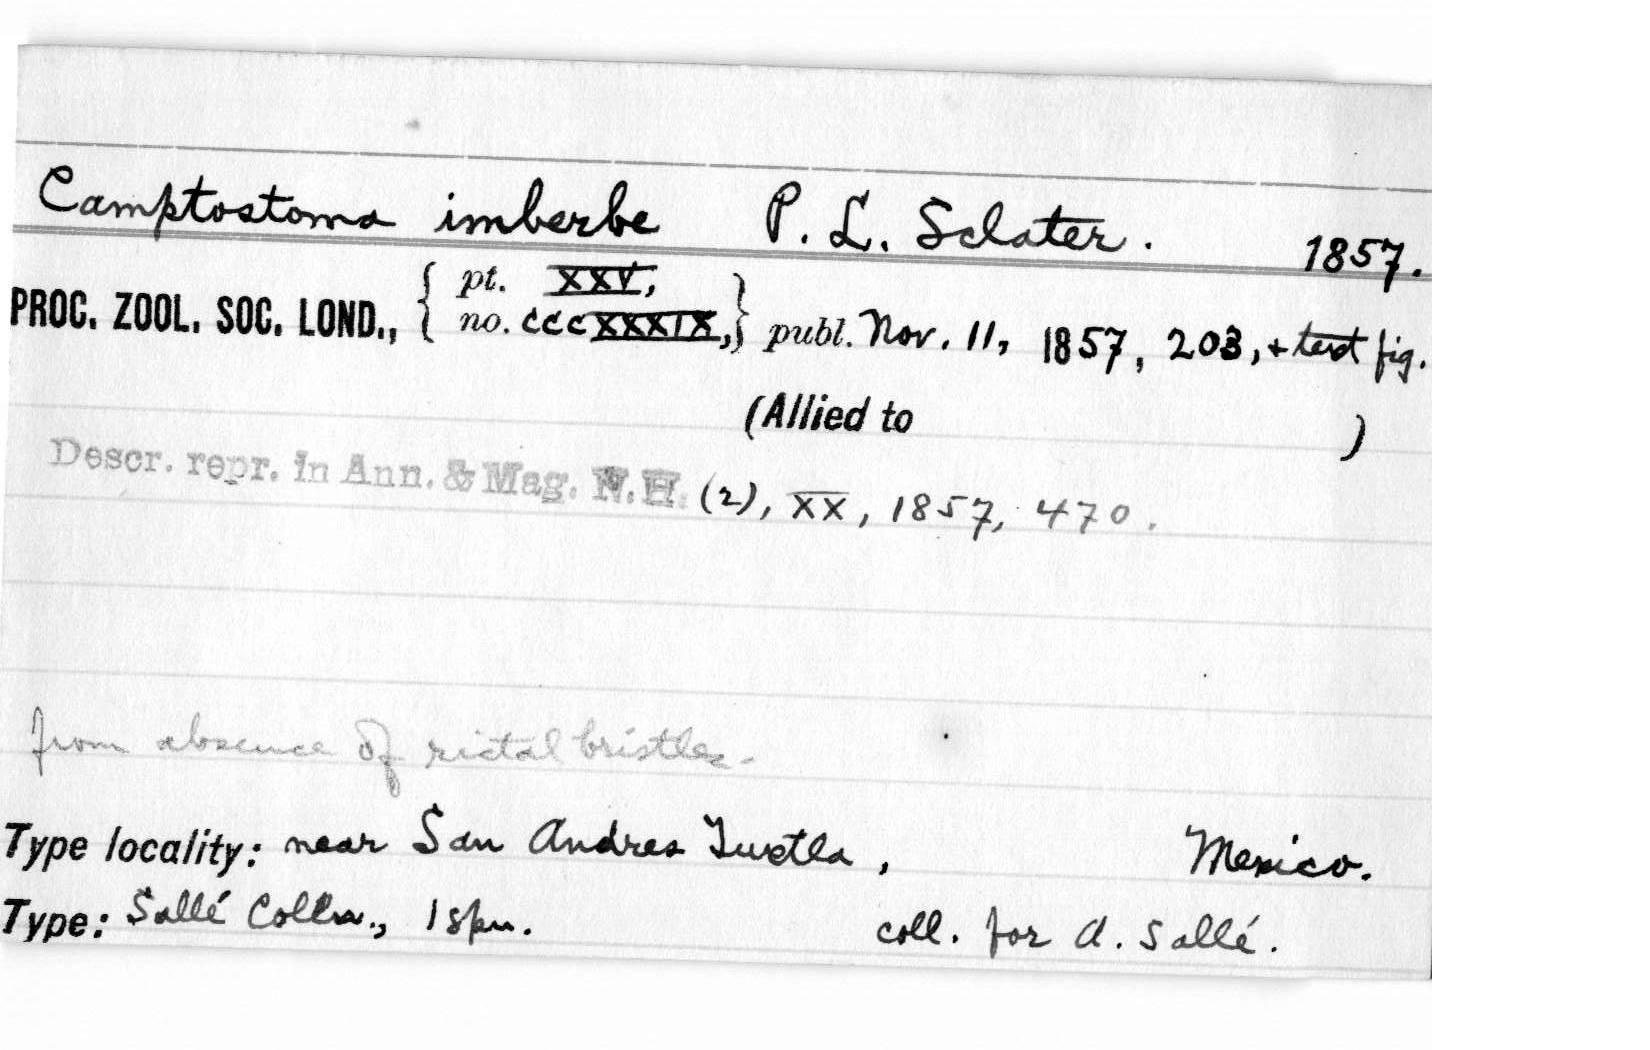 Camptostoma imberbe P. L. Sclater. 1857.
PROC. ZOOL. SOC. LOND., { pt. XXV, no. CCCXXXIX, } publ. Nov. 11, 1857, 203, + text fig.
(Allied to )
Descr. repr. in Ann. & Mag. N.H. (2), XX, 1857, 470.
from absence of rictal bristles.
Type locality: near San Andres Tuxtla, Mexico.
Type: Sallé Colln., 1 spm. coll. for A. Sallé.